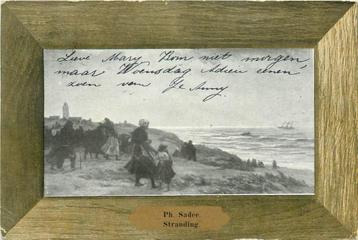 Lieve Mary Kom niet morgen
maar Woensdag Adieu eenen
zoen van Je Anny
Ph. Sadee.
Stranding.